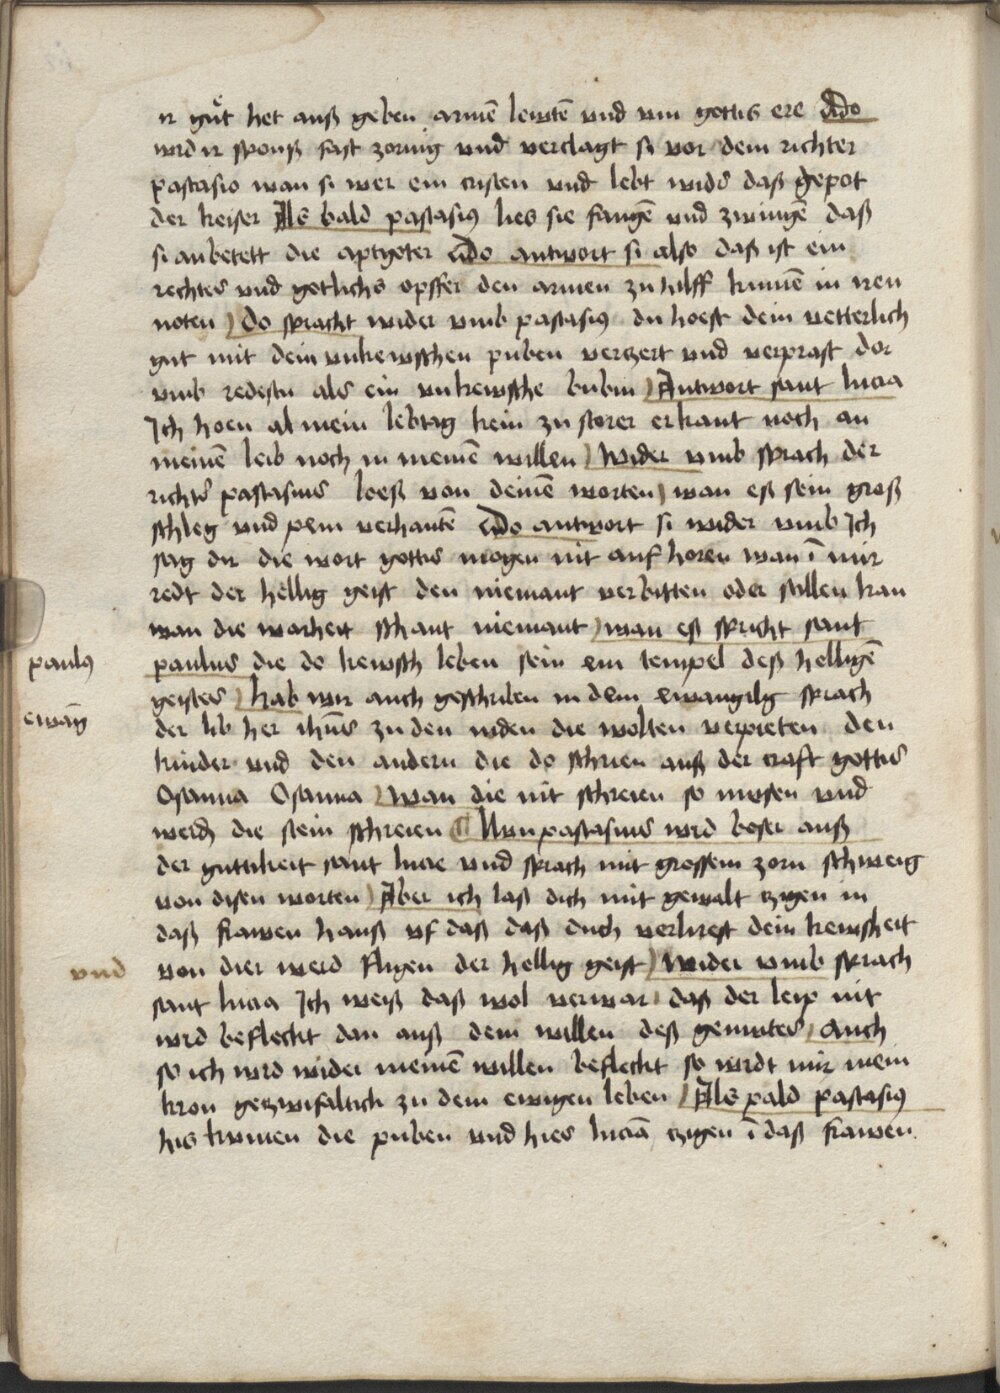 ir gůt het auß geben armē lewtē vnd vm gottis ere Do
wrd ir sponß fast zornig vnd verclagt si vor dem richter
pastasio wan si wer ein cristen vnd lebt wider daß gepot
der keiser Als bald pastasiꝰ lies sie fangē vnd zwingē daß
si anbetett die aptgoter Do antwort si also daß ist ein
rechtes vnd gotlichs opffer den armen zu hilff kumē in iren
noten Do spracht wider vmb pastasiꝰ du hoest dein vetterlich
gut mit dein vnkewschen puben verzert vnd verprast dor
vmb redestu als ein vnkewsche bubin Antwort sant lucia
Ich hoen al mein lebtag kein zu storer erkant noch an
meinē leib noch in meinē willen Wider vmb sprach der
richter pastasius loeß von deinē worten wan eß sein groß
schleg vnd pein verhantē Do antwort si wider vmb Ich
sag dir die wort gottis mogen nit auf horen wan ī mir
redt der hellig geist den niemant verbitten oder stillen kan
wan die warheit schant niemant wan eß spricht sant
paulꝰ
paulus die do kewsch leben sein ein tempel deß helligē
geistes hab wir auch geschriben in dem ewangilg sprach
ewāg
der lib her ihūs zu den iuden die wolten verpieten den
kinder vnd den andern die do schrien auß der craft gottis
Osanna Osanna Wan die nit schreien so musen vnd
werdē die stein schreien Nun pastasius wrd boser auß
der guttikeit sant lucie vnd sprach mit grossem zorn schweig
von disen worten Aber ich laß dich mit gewalt zigen in
daß frawen hauß vf daß daß duch verlirest dein kewsheit
vnd
von dier werd fligen der hellig geist Wider vmb sprach
sant lucia Ich weiß daß wol verwar daß der leip nit
wrd befleckt dan auß dem willen deß gemutes auch
so ich wrd wider meinē willen befleckt so wirdt mir mein
kron gezwifaltich zu dem ewigen leben Als pald pastasiꝰ
his kumen die puben vnd hies luciā zigen ī daß frawen